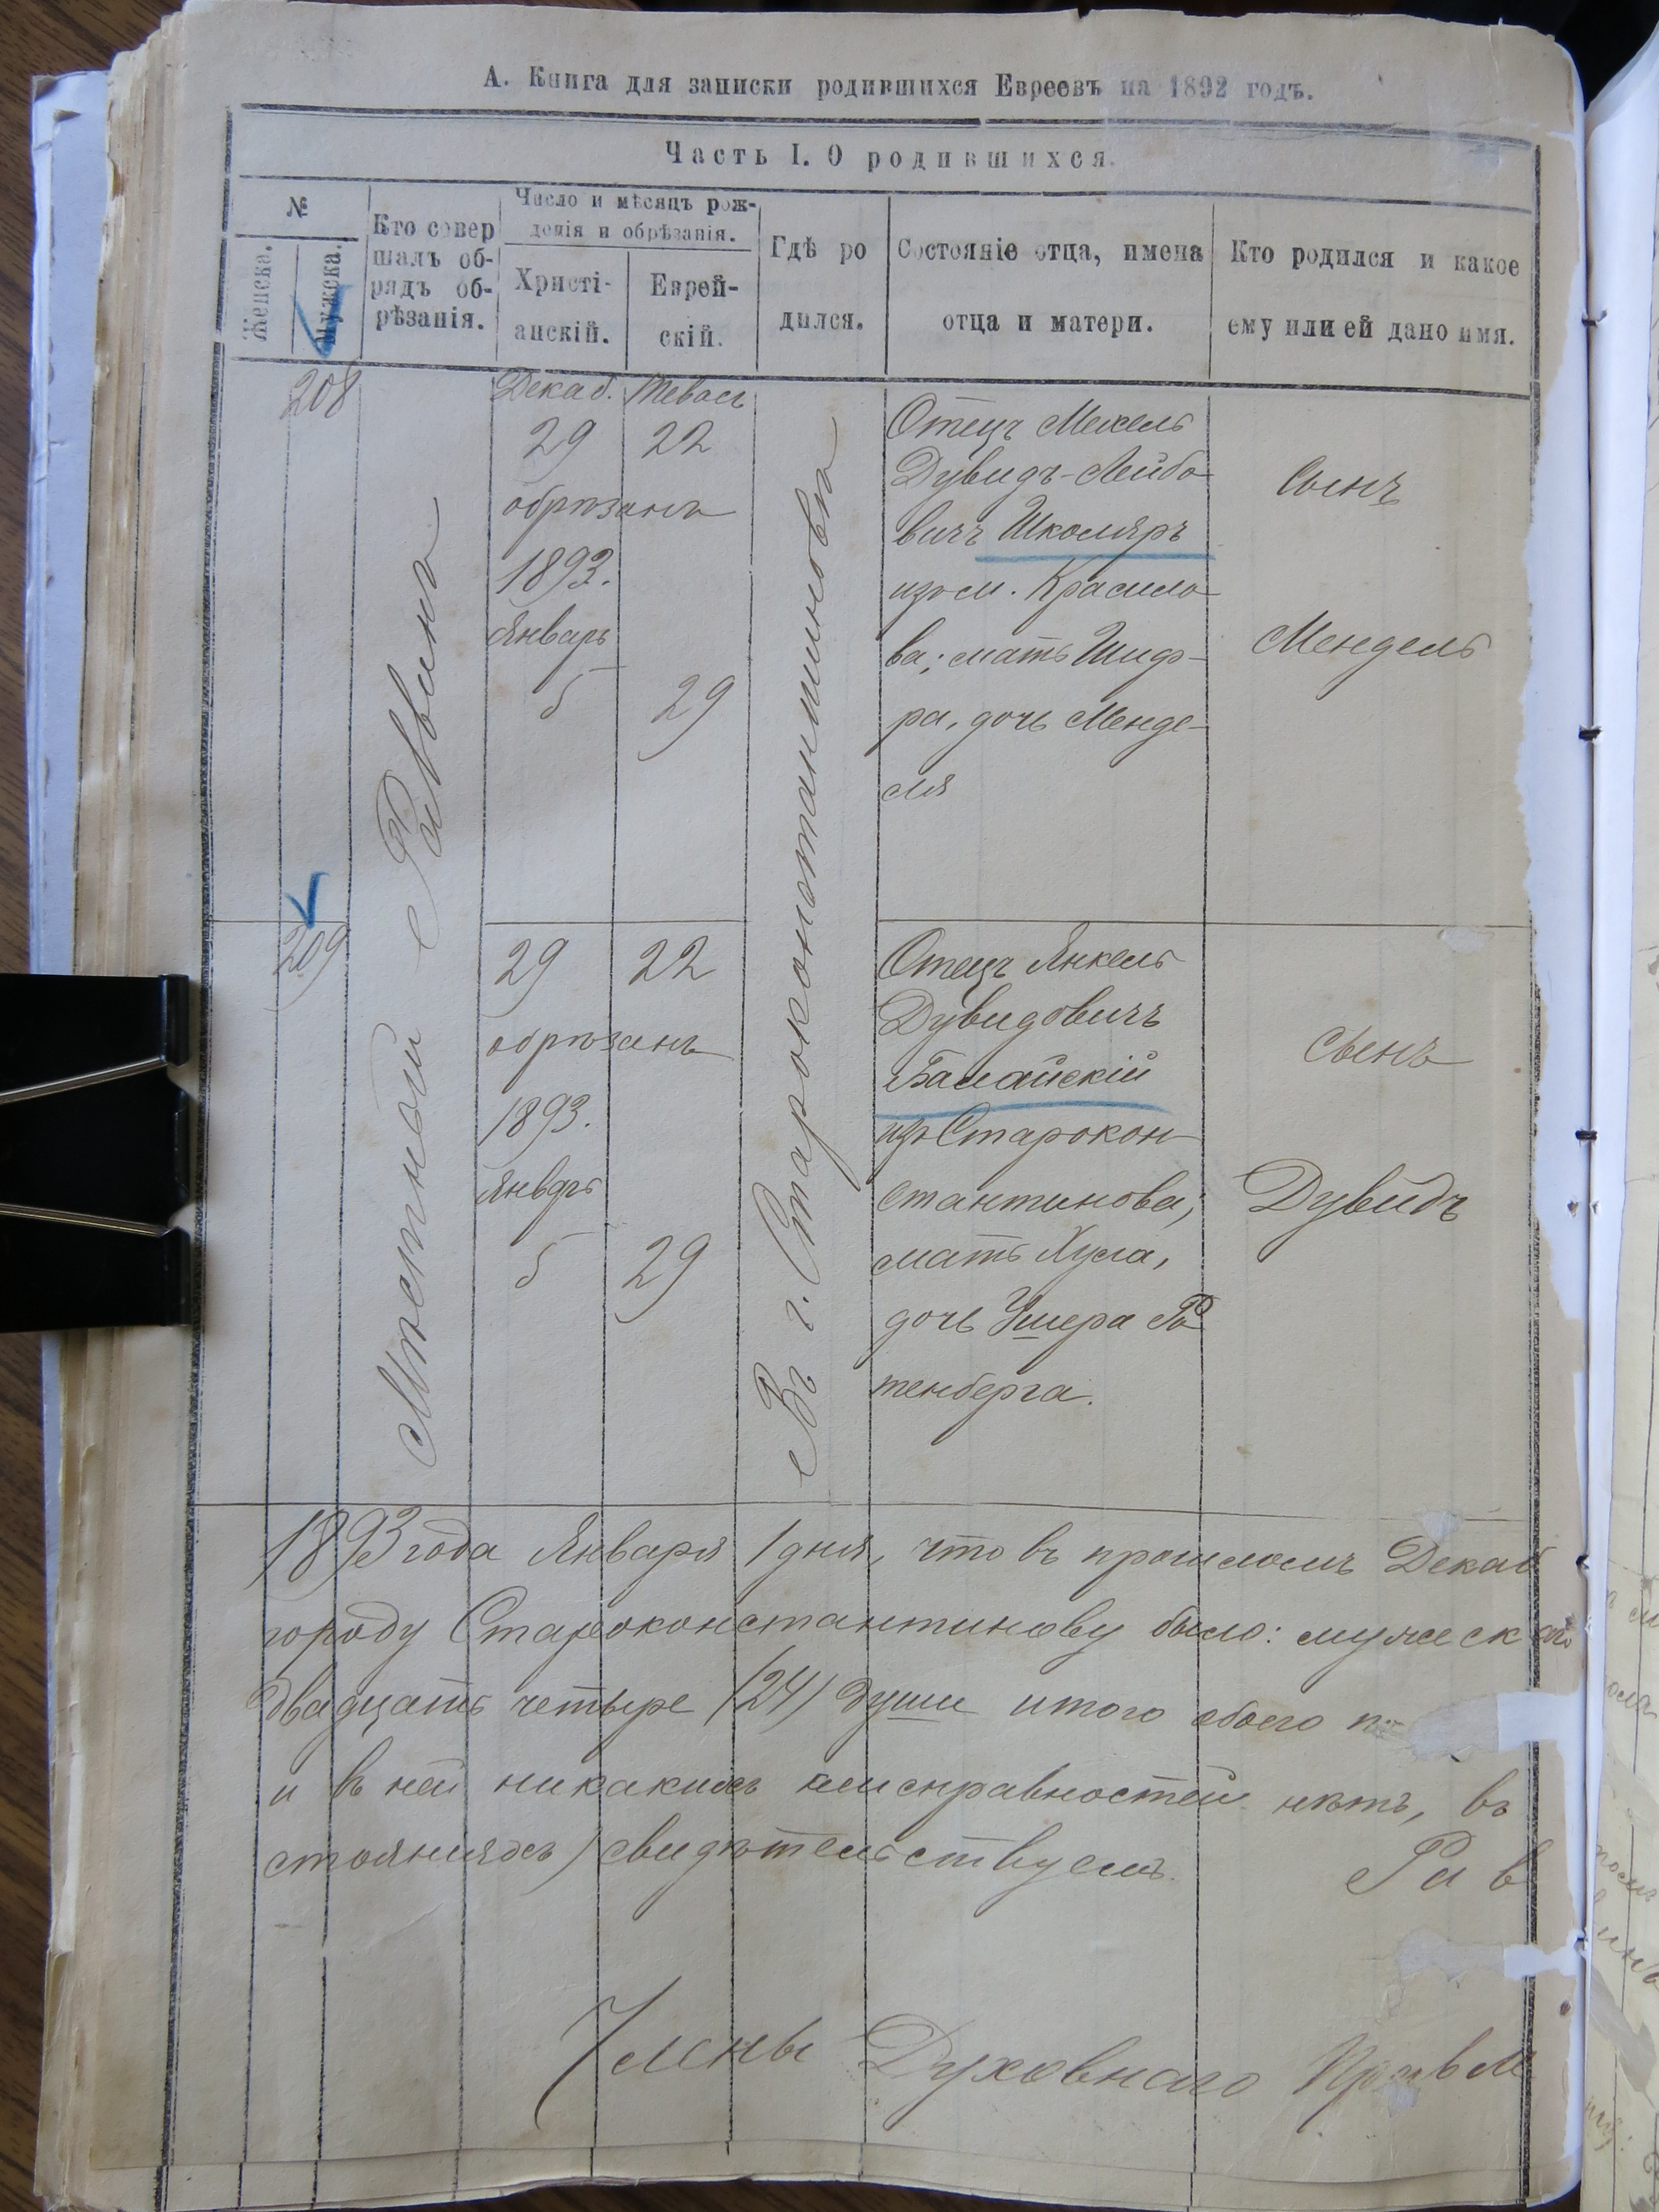 А. Книга для записки родившихся Евреевъ на 1892 годъ.
Часть I. О родившихся.
№
Женска.
Мужска.
Кто совер
шалъ об-
рядъ об-
рѣзанія.
Число и мѣсяцъ рож-
денія и обрѣзанія.
Христі-
анскій.
Еврей-
скій.
Гдѣ ро
дился.
Состояніе отца, имена
отца и матери.
Кто родился и какое
ему или ей дано имя.
208
Мѣстной Раввинъ
Декаб.
29
Тевесъ
22
обрѣзанъ
1893.
Январь
5
29
Въ г. Староконстантиновѣ
Отецъ Мекель
Дувидъ-Лейбо-
вичъ Школяръ
изъ м. Красило-
ва; мать Шиф-
ра, дочь Менде-
ля
Сынъ
Мендель
209
29
22
обрѣзанъ
1893.
Январь
5
29
Отецъ Янкель
Дувидовичъ
изъ Старокон-
стантинова;
мать
дочь Ушера Ро
тенберга.
Сынъ
Дувидъ
1893 года Января 1 дня, что въ прошломъ Декаб
городу Староконстантинову было: мужеск
двадцать четыре (24) души итого обоего п
и въ ней никакихъ неисправностей нѣтъ, въ
стояніяхъ) свидѣтельствуемъ.
Рав
Члены Духовнаго Правл